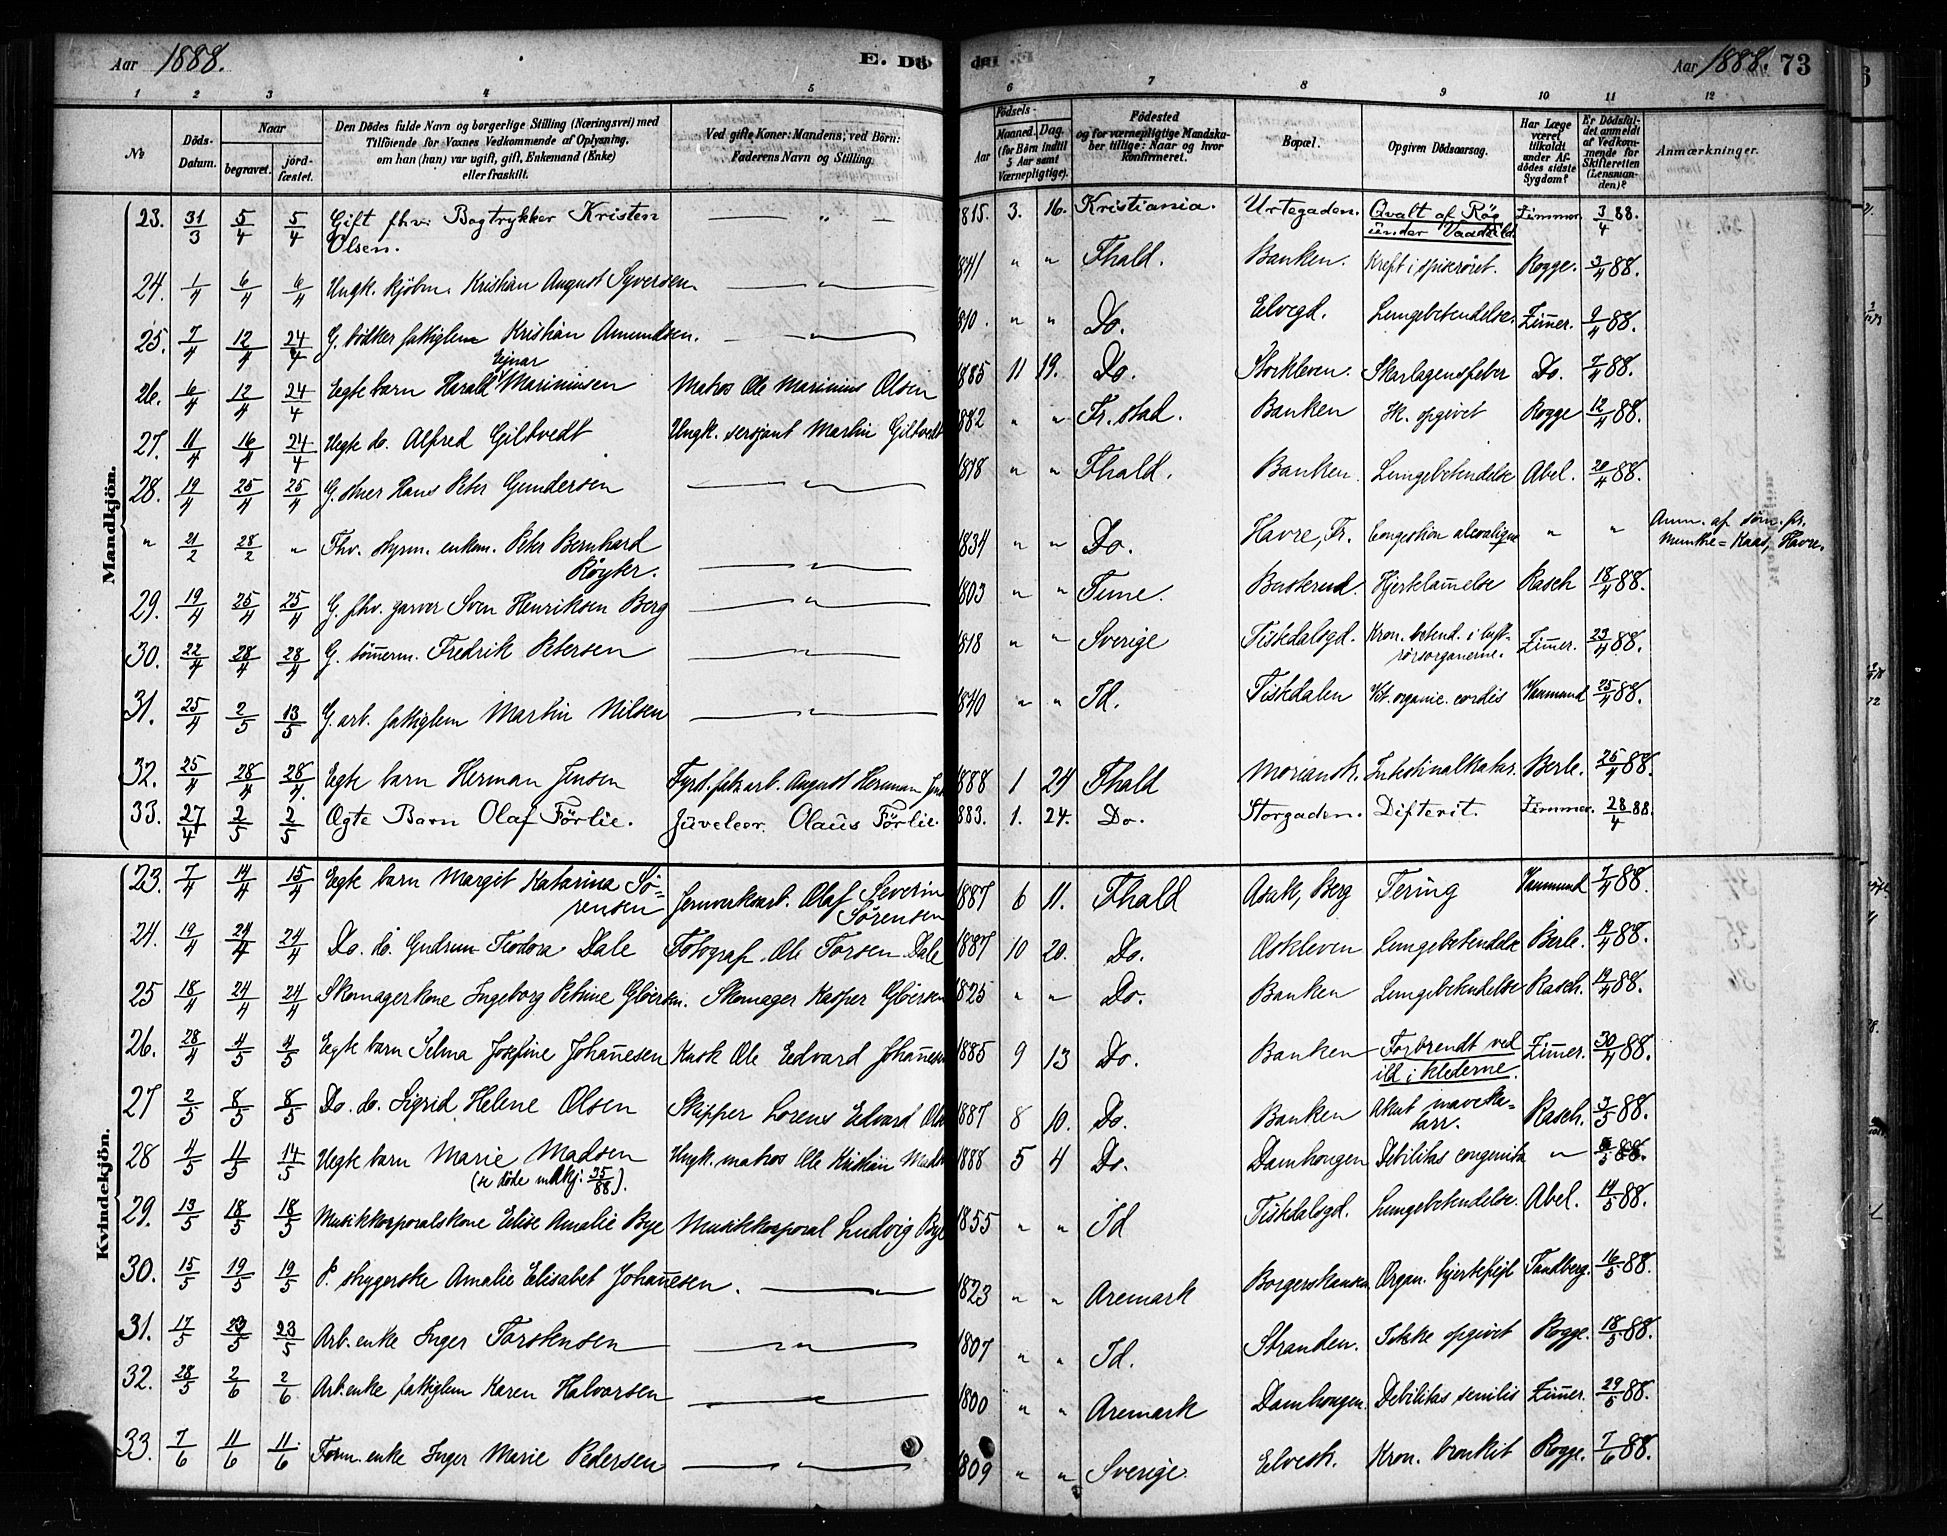 Aar 1888.
E. Dö
Aar 1888. 73
1 2 3 4 5 6 7 8 9 10 11 12
No
Döds-Datum.
Naar
begravet.
jord-fæstet.
Den Dödes fulde Navn og borgerlige Stilling (Næringsvei) med
Tilföiende for Voxnes Vedkommende af Oplysning,
om han (hun) var ugift, gift, Enkemand (Enke)
eller fraskilt.
Ved gifte Koner: Mandens; ved Börn:
Faderens Navn og Stilling.
Födsels-
Aar
Maaned. Dag.
(for Börn indtil
5 Aar samt
Værnepligtige).
Födested
og for værnepligtige Mandska-
ber tillige: Naar og hvor
konfirmeret.
Bopæl.
Opgiven Dödsaarsag.
Har Læge
været
tilkaldt
under Af-
dödes sidste
Sygdom?
Er Dödsfal-
det anmeldt
af Vedkom-
mende for
Skifteretten
(Lensman-
den)?
Anmærkninger.
Mandkjön.
23. 31/3 5/4 5/4 Gift fhv. Bogtrykker Kristen Olsen. — " — 1815. 3. 16. Kristiania. Urtegaden. Qvalt af Røg under Vaadeild. Zimmer. 3/4 88.
24. 1/4 6/4 6/4 Ungk. kjøbm. Kristian August Syversen. — " — 1841 " " Fhald. Banken. Kreft i spiserøret. Rogge. 3/4 88.
25. 7/4 12/4 24/4 G. bødker fattiglem Kristian Amundsen. — " — 1810. " " Do. Elvegd. Lungebetendelse. Zimer. 9/4 88.
26. 6/4 12/4 24/4 Egte barn Harald Ejnar Mariniusen Matros Ole Marinius Olsen 1885 11 19. Do. Storkleven. Skarlagensfeber Do. 7/4 88.
27. 11/4 16/4 24/4 Uegte do. Alfred Giltvedt Ungk. sersjant Martin Giltvedt 1882 " " Fr.stad. Banken Ik. opgivet Rogge 12/4 88.
28. 19/4 25/4 25/4 G. Hans Peter Gundersen — " — 1818 " " Fhald. Banken. Lungebetendelse Abel. 20/4 88.
" 21/2 28/2 " Fhv. styrm. enkem. Peter Bernhard Røyter. — " — 1834 " " Do. Havre, Fr. Congestion " " Anm. af søm.pr. Munthe-Kaas, Havre.
29. 19/4 25/4 25/4 G. fhv. garver Sven Henriksen Berg — " — 1803 " " Tune. Buskrud. Hjertelamelse Rasch 18/4 88.
30. 22/4 28/4 28/4 G. tømerm. Fredrik Petersen — " — 1818 " " Sverige Tistedalsgd. Kron. betend. i luft-rørsorganerne. Zimer. 23/4 88.
31. 25/4 2/5 13/5 G. arb. fattiglem Martin Nilsen — " — 1840 " " Id. Tistedalen Vit. organic. cordis Vanmund 25/4 88.
32. 25/4 28/4 28/4 Egte barn Herman Jensen August Herman 1888 1 24 Fhald Intestinalkatar. Berle. 26/4 88.
33. 27/4 2/5 2/5 Ægte Barn Olaf Førlie. Juveleer. Olaus Førlie. 1883. 1. 24. Do. Storgaden. Difterit. Zimmer. 28/4 88.
Kvindekjön.
23. 7/4 14/4 15/4 Egte barn Margit Katarina Sø-rensen Jernverksarb. Olaf Severin Sørensen 1887 6 11. Fhald Asak, Berg Tering Vanmund 7/4 88.
24. 19/4 24/4 24/4 Do. do. Gudrun Teodora Dale Fotograf Ole Torsen Dale 1887 10 20. Do. Oskleven Lungebetendelse Berle. 19/4 88.
25 18/4 24/4 24/4 Skomagerkone Ingeborg Petrine Gløersen. Skomager Kasper Gløersen 1825 " " Do. Banken Lungebetendelse Rasch. 19/4 88.
26. 28/4 4/5 4/5 Egte barn Selma Josefine Johanesen Kusk Ole Edvard Johanesen 1885 9 13 Do. Banken Forbrendt ved ild i klederne. Zimer. 30/4 88.
27 2/5 8/5 8/5 Do. do. Sigrid Helene Olsen Skipper Lorens Edvard Olsen 1887 8 10. Do. Banken Akut maveka-tarr. Rasch. 3/5 88.
28 4/5 11/5 14/5 Uegte barn Marie Madsen (se døde mdkj. 25/88). Ungk. matros Ole Kristian 1888 5 4 Do. Damhougen Debilitas congenita " 5/5 88.
29. 13/5 18/5 18/5 Musikkorporalskone Elise Amalie Bye Musikkorporal Ludvig Bye 1855 " " Id Tistdalsgd. Lungebetendelse. Abel. 14/5 88.
30. 15/5 19/5 19/5 P. sygerske Amalie Elisabet Johanesen. — " — 1823 " " Aremark Borgerskansen Organ. hjertefejl Tandberg. 16/5 88.
31. 17/5 23/5 23/5 Arb. enke Inger Torstensen — " — 1807 " " Id. Stranden. Ikke opgivet Rogge. 18/5 88.
32. 28/5 2/6 2/6 Arb. enke fattiglem Karen Halvorsen — " — 1800 " " Aremark Damhougen. Debilitas senilis Zimer. 29/5 88.
33. 7/6 11/6 11/6 Tøm. enke Inger Marie Pedersen — " — 1809 " " Sverige. Elvest. Kron. bronkit Rogge. 7/6 88.